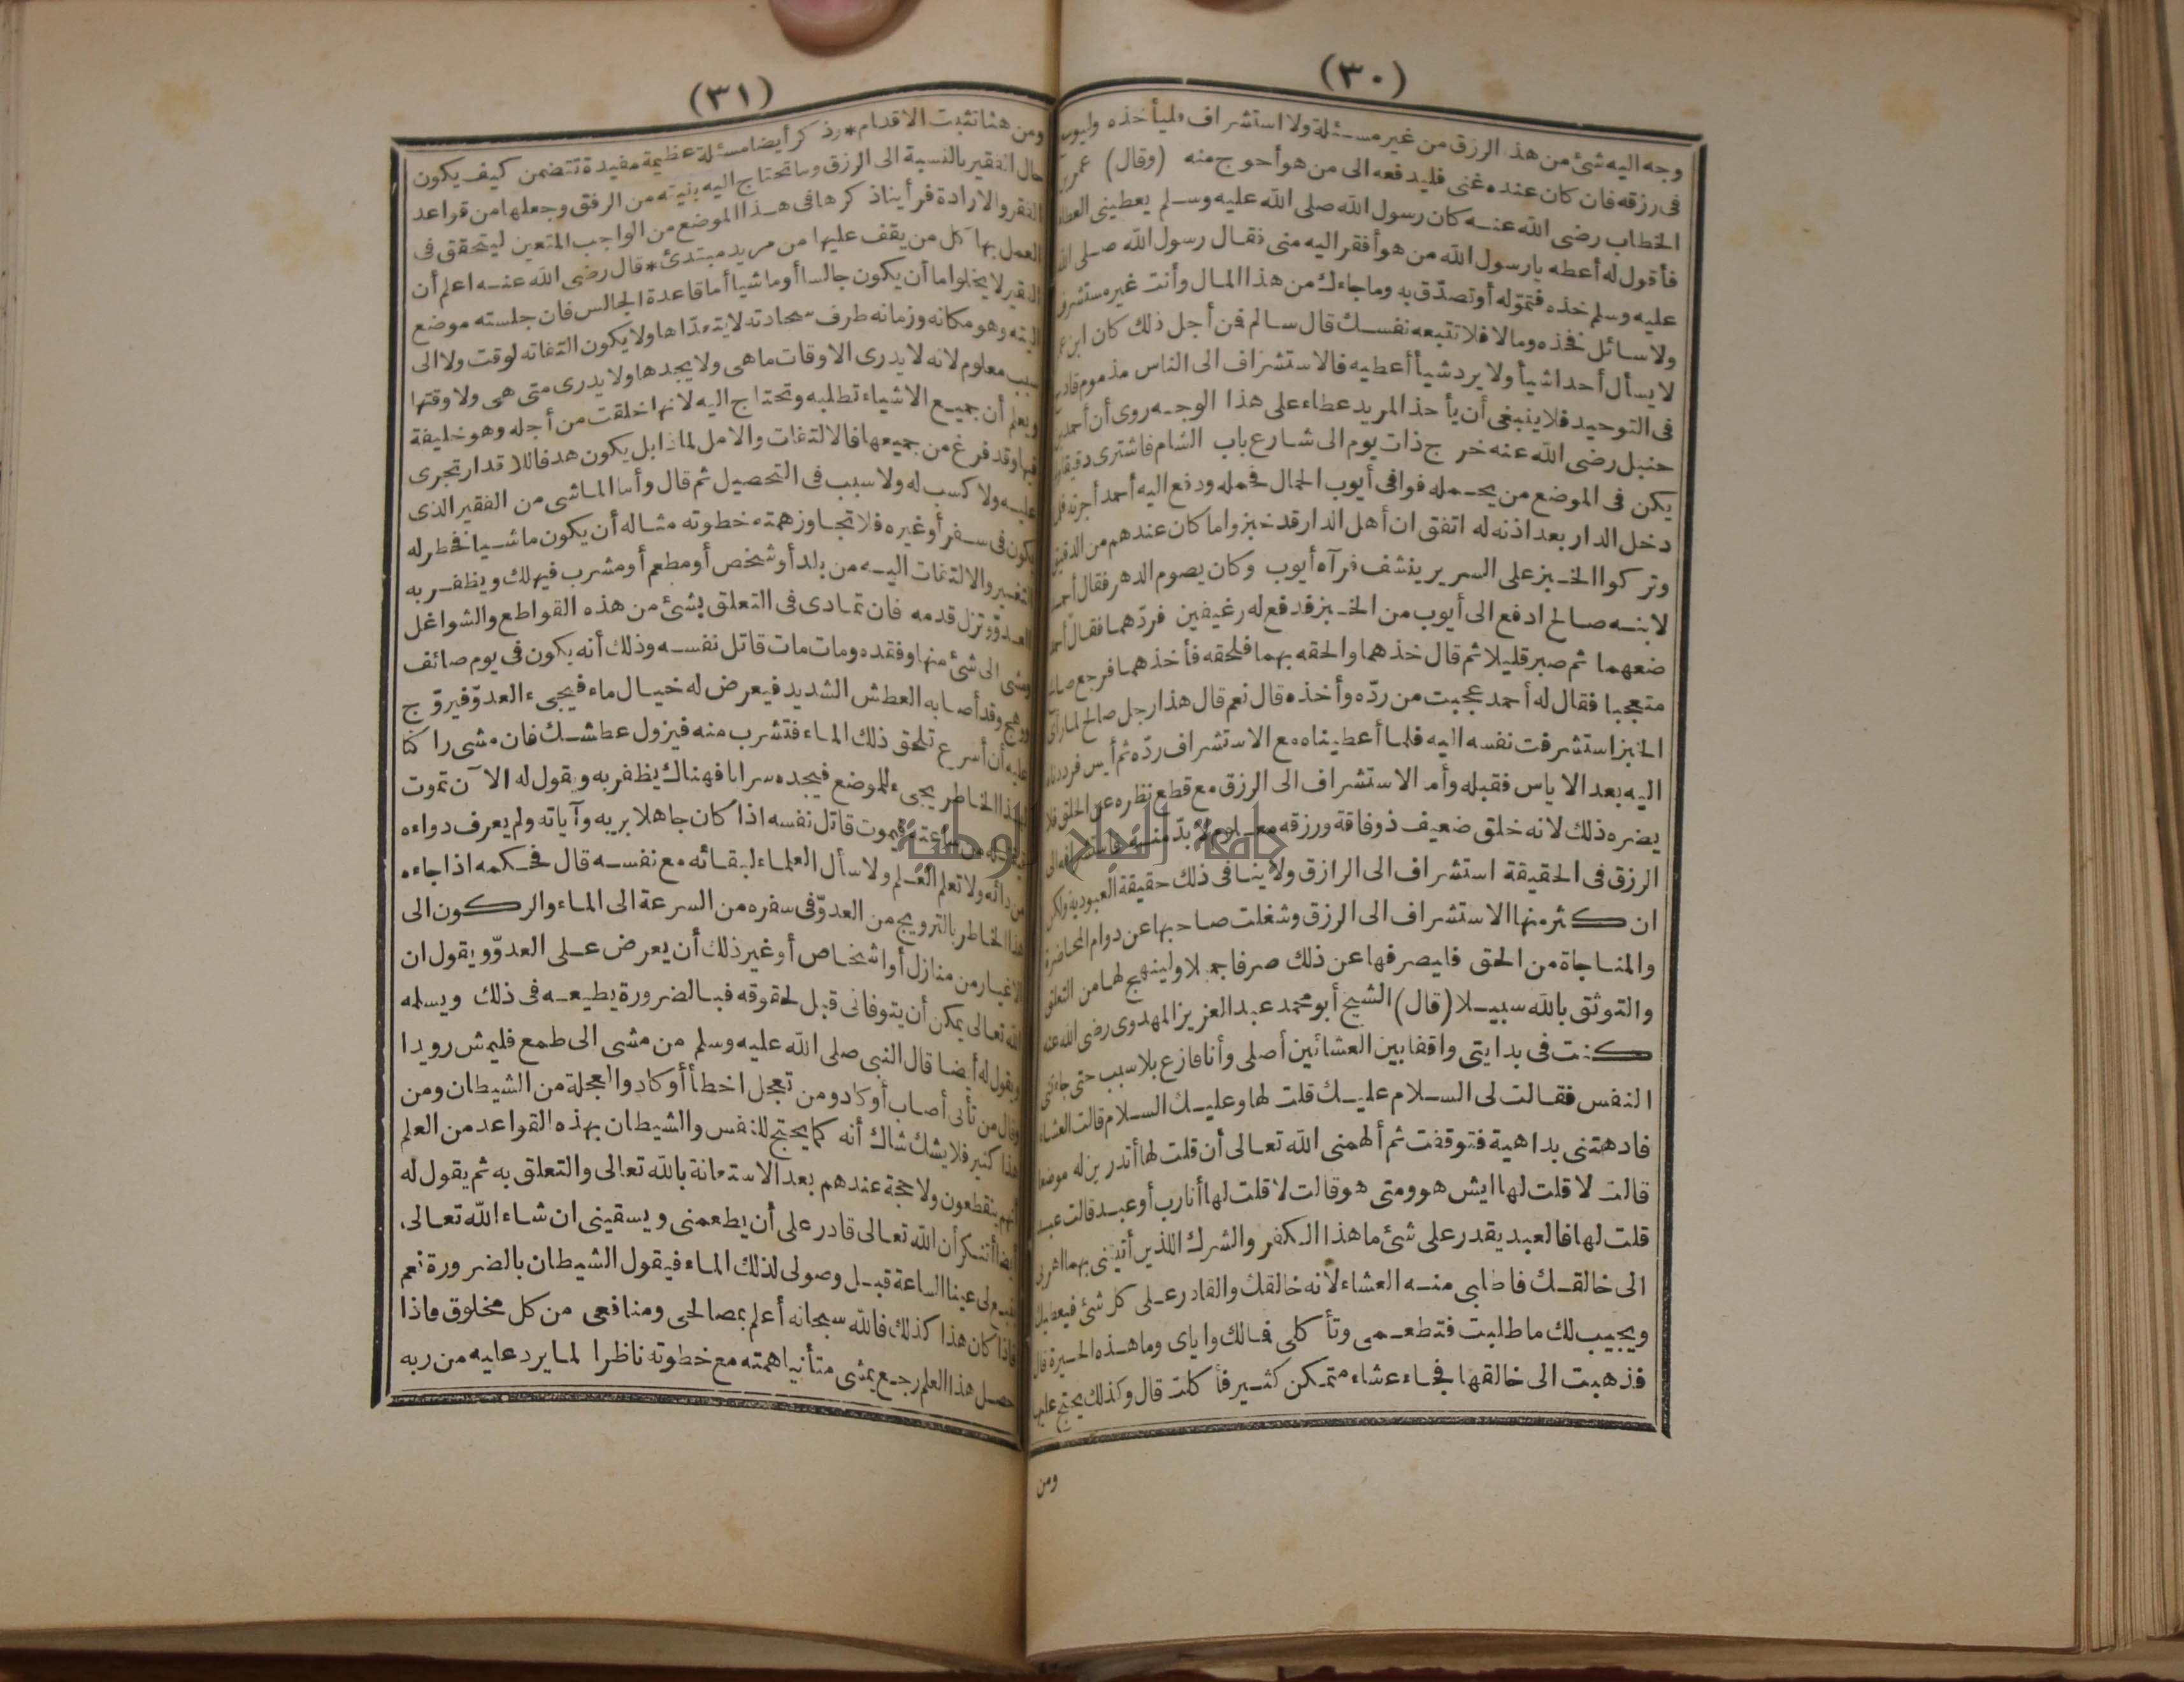 (٣٠)
وجه اليه شئ من هذا الرزق من غير مسئلة ولا استشراف فليأخذه وليوسع
فى رزقه فان كان عنده غنى فليدفعه الى من هو أحوج منه (وقال) عمر بن
الخطاب رضى الله عنه كان رسول الله صلى الله عليه وسلم يعطينى العطاء
فأقول له أعطه يارسول الله من هو أفقر اليه منى فقال رسول الله صلى الله
عليه وسلم خذه فتموّله أو تصدّق به وما جاءك من هذا المال وأنت غير مستشرف
ولا سائل فخذه وما لا فلا تتبعه نفسك قال سالم فمن أجل ذلك كان ابن عمر
لا يسأل أحدا شيأ ولا يرد شيأ أعطيه فالاستشراف الى الناس مذموم قادح
فى التوحيد فلا ينبغى أن يأخذ المريد عطاء على هذا الوجه روى أن أحمد بن
حنبل رضى الله عنه خرج ذات يوم الى شارع باب الشام فاشترى دقيقا ولم
يكن فى الموضع من يحمله فوافى أيوب الحمال فحمله ودفع اليه أحمد أجرته فلما
دخل الدار بعد اذنه له اتفق ان أهل الدار قد خبزوا ما كان عندهم من الدقيق
وتركوا الخبز على السرير ينشف فرآه أيوب وكان يصوم الدهر فقال أحمد
لابنه صالح ادفع الى أيوب من الخبز فدفع له رغيفين فردّهما فقال أحمد
ضعهما ثم صبر قليلا ثم قال خذهما والحقه بهما فلحقه فأخذهما فرجع صالح
متعجبا فقال له أحمد عجبت من ردّه وأخذه قال نعم قال هذا رجل صالح لما رأى
الخبز استشرفت نفسه اليه فلما أعطيناه مع الاستشراف ردّه ثم أيس فرددناه
اليه بعد الاياس فقبله وأما الاستشراف الى الرزق مع قطع نظره عن الخلق فلا
يضره ذلك لانه خلق ضعيف ذو فاقة ورزقه معلوم لابدّ منه فاستشرافه الى
الرزق فى الحقيقة استشراف الى الرازق ولا ينافى ذلك حقيقة العبودية ولكن
ان كثر منها الاستشراف الى الرزق وشغلت صاحبها عن دوام المحاضرة
والمناجاة من الحق فليصرفها عن ذلك صرفا جملا ولينهج لها من التعلق
والتوثق بالله سبيلا (قال) الشيخ أبو محمد عبد العزيز المهدوى رضى الله عنه
كنت فى بدايتى واقفا بين العشائين أصلى وأنا فازع بلا سبب حتى جاءتنى
النفس فقالت لى السلام عليك قلت لها وعليك السلام قالت العشاء
فادهتنى بداهية فتوقفت ثم ألهمنى الله تعالى أن قلت لها أتدرين له موضعا
قالت لا قلت لها ايش هو ومتى هو قالت لا قلت لها أنا رب أو عبد قالت عبد
قلت لها فالعبد يقدر على شئ ما هذا الكفر والشرك اللذين أتيتنى بهما
الى خالقك فاطلبى منه العشاء لانه خالقك والقادر على كل شئ فيعطيك
ويجيب لك ما طلبت فتطعمى وتأكلى فمالك واياى وما هذه الحيرة قال
فذهبت الى خالقها فجاء عشاء متمكن كثير فأكلت قال وكذلك يحتج عليها
ومن
(٣١)
ومن هنا تثبت الاقدام * وذكر أيضا مسئلة عظيمة مفيدة تتضمن كيف يكون
حال الفقير بالنسبة الى الرزق وما تحتاج اليه بنيته من الرفق وجعلها من قواعد
الفقر والارادة فرأينا ذكرها فى هذا الموضع من الواجب المتعين ليتحقق فى
العمل بها كل من يقف عليها من مريد مبتدئ * قال رضى الله عنه اعلم أن
الفقير لا يخلو اما أن يكون جالسا أو ماشيا أما قاعدة الجالس فان جلسته موضع
البته وهو مكانه وزمانه طرف سجادته لا يتعدّاها ولا يكون التفاته لوقت ولا الى
سبب معلوم لانه لا يدرى الاوقات ما هى ولا يجدها ولا يدرى متى هى ولا وقتها
ويعلم أن جميع الاشياء تطلبه وتحتاج اليه لانها خلقت من أجله وهو خليفة
فيها وقد فرغ من جميعها فالالتفات والامل لماذا بل يكون هدفا للاقدار تجرى
عليه ولا كسب له ولا سبب فى التحصيل ثم قال وأما الماشى من الفقير الذى
يكون فى سفر أو غيره فلا تجاوز همته خطوته مثاله أن يكون ماشيا فخطر له
التغيير والالتفات اليه من بلد أو شخص أو مطعم أو مشرب فيهلك ويظفر به
العدوّ وتزل قدمه فان تمادى فى التعلق بشئ من هذه القواطع والشواغل
ومشى الى شئ منها وفقده ومات مات قاتل نفسه وذلك أنه يكون فى يوم صائف
وهج وقد أصابه العطش الشديد فيعرض له خيال ماء فيجىء العدوّ فيروّج
عليه أن أسرع تلحق ذلك الماء فتشرب منه فيزول عطشك فان مشى راكنا
لهذا الخاطر يجىء للموضع فيجده سرابا فهناك يظفر به ويقول له الآن تموت
من ساعته فيموت قاتل نفسه اذا كان جاهلا بربه وآياته ولم يعرف دواءه
من دائه ولا تعلم العلم ولا سأل العلماء لبقائه مع نفسه قال فحكمه اذا جاءه
هذا الخاطر بالترويج من العدوّ فى سفره من السرعة الى الماء والركون الى
الاغيار من منازل أو اشخاص أو غير ذلك أن يعرض على العدوّ ويقول ان
الله تعالى يمكن أن يتوفانى قبل لحقوقه فبالضرورة يطيعه فى ذلك ويسلمه
ويقول له أيضا قال النبى صلى الله عليه وسلم من مشى الى طمع فليمش رويدا
وقال من تأنى أصاب أو كاد ومن تعجل اخطأ أو كاد والعجلة من الشيطان ومن
هذا كثير فلا يشك شاك أنه كما يحتج للنفس والشيطان بهذه القواعد من العلم
انهم ينقطعون ولا حجة عندهم بعد الاستعانة بالله تعالى والتعلق به ثم يقول له
أيضا أتنكر أن الله تعالى قادر على أن يطعمنى ويسقينى ان شاء الله تعالى
لى عينا الساعة قبل وصولى لذلك الماء فيقول الشيطان بالضرورة نعم
فاذا كان هذا كذلك فالله سبحانه أعلم بمصالحى ومنافعى من كل مخلوق فاذا
حصل هذا العلم رجع يمشى متأنيا همته مع خطوته ناظرا لما يرد عليه من ربه
جامعة النجاح الوطنية